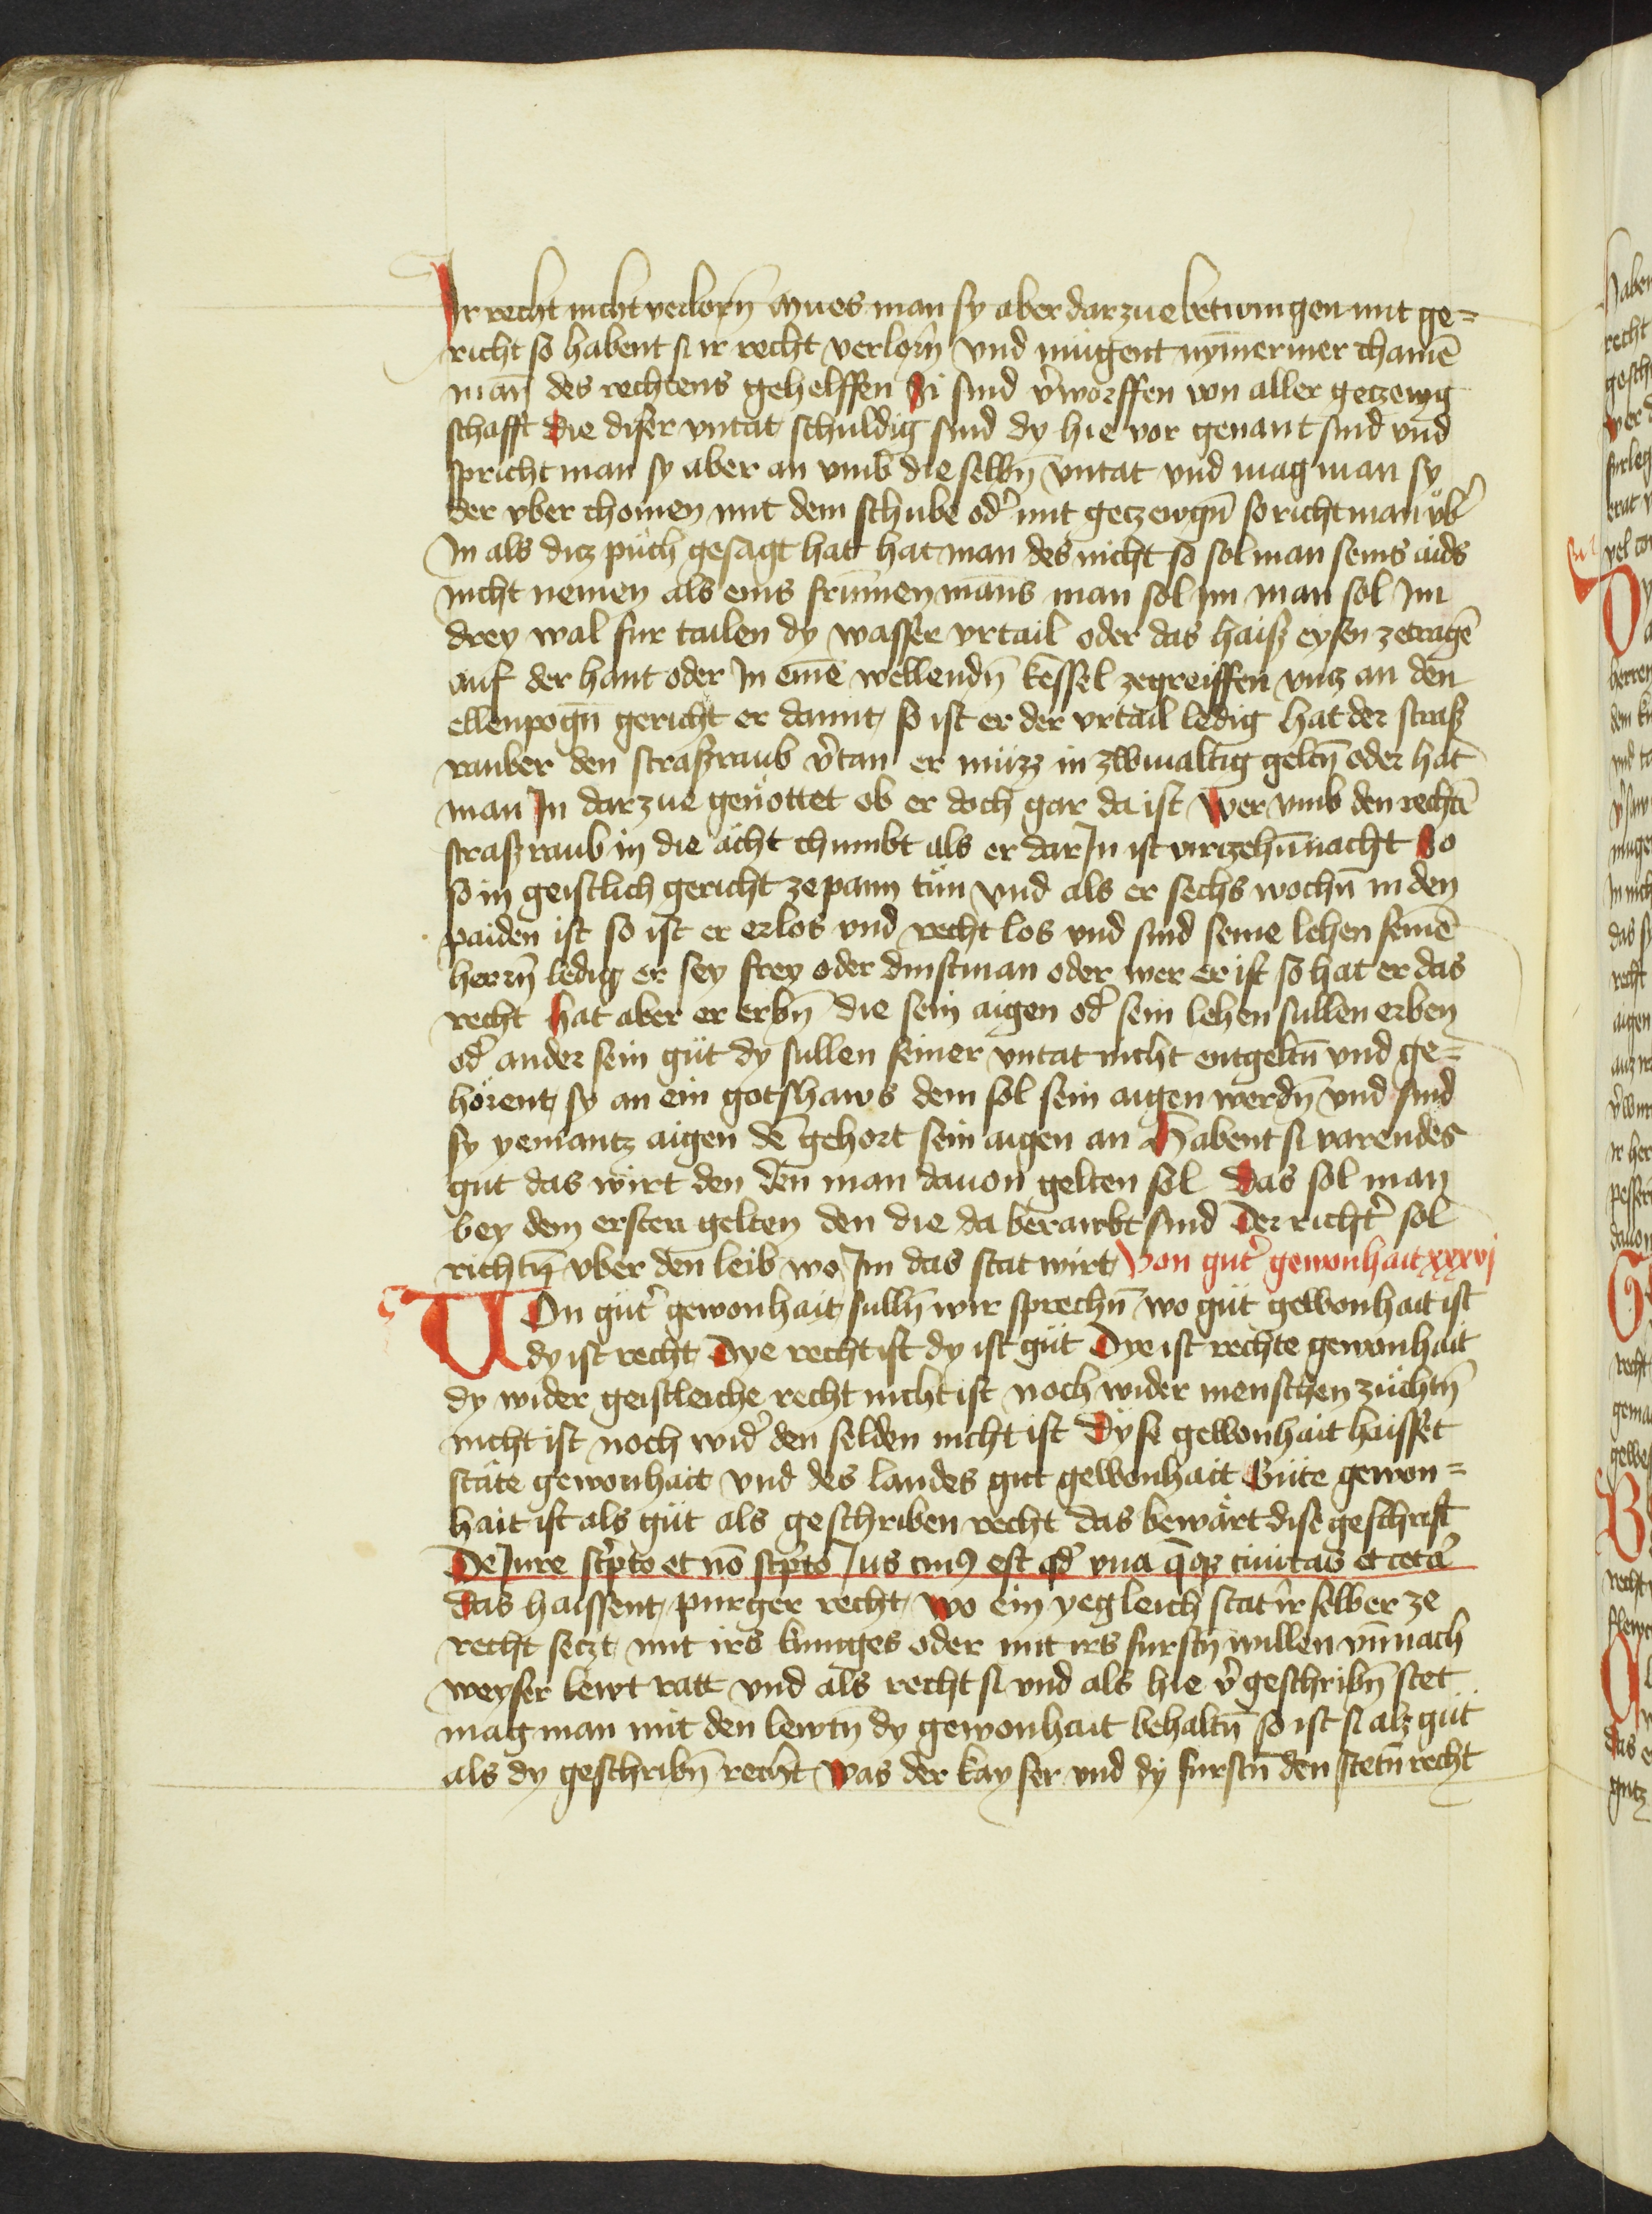 Ir recht nicht verlorn̄ Mues man sy aber dar zue betwingen mit ge=
richt so habent si ir recht verlorn̄ vnd mügent nymermer chainē
man̄ des rechtens gehelffen Si sind v̉worffen von aller getzewg
schafft Die diser vntat schuldig sind dy hie vor genant sind vnd
spricht man sy aber an vmb die selbn̄ vntat vnd mag man sy
der vber chomen mit dem schube od̉ mit getzewgn̄ so richt man vb̉
In als ditz püch gesagt hat hat man des nicht so sol man seins aids
nicht nemen als eins frümen mans man sol im man sol Im
drey wal fur tailen dy wasser vrtail oder das haiß eysen zetragē
auf der hant oder In einē wellendn̄ kessel zegreiffen vntz an den
ellenpogn̄ gericht er damit so ist er der vrtail ledig hat der straß
rauber den straßraub v̉tan er müzz in zwiualtig geltn̄ oder hat
man In dar zue genöttet ob er doch gar da ist Wer vmb den rechtē
straßraub in die ächt chumbt als er dar In ist virtzehn̄nacht So
so in geistlich gericht ze pann tün vnd als er sechs wochn̄ in den
paiden ist so ist er erlos vnd recht los vnd sind seine lehen seinē
herrn̄ ledig er sey frey oder dinstman oder wer er ist so hat er das
recht hat aber er erbn̄ die sein aigen od̉ sein lehen sullen erben
od̉ ander sein güt dy sullen seiner vntat nicht entgeltn̄ vnd ge=
hörent sy an ein gotshaws dem sol sein aigen werdn̄ vnd sind
sy yemantz aigen dē gehort sein aigen an Habent si varendes
gut das wirt den den man dauon gelten sol Das sol man
bey dem ersten gelten den die da beraubt sind Der richt̉ sol
richtn̄ vber den leib wo Im das stat wirt Von gut̉ gewonhait xxxvj
VOn güt̉ gewonhait sulln̄ wir sprechn̄ wo güt gewonhait ist
dy ist recht Dye recht ist dy ist güt Dye ist rechte gewonhait
dy wider geistleiche recht nicht ist noch wider menschen züchtn̄
nicht ist noch wid̉ den selden nicht ist Dyse gewonhait haisset
stäte gewonhait vnd des landes gut gewonhait Güte gewon=
hait ist als güt als geschriben recht das bewärt dise geschrift
De Iure sc̉pto et nō sc̉pto Ius ciuꝰ est qd̉ vna q̄qz ciuitas et cetā
das haissent purger recht wo ein yegleich stat ir selber ze
recht setzt mit irs kuniges oder mit irs furstn̄ willen vn̄ nach
weyser lewt ratt vnd als recht si vnd als hie v̉ geschribn̄ stet
mag man mit den lewtn̄ dy gewonhait behaltn̄ so ist si alz güt
als dy geschribn̄ recht Was der kayser vnd dy furstn̄ den stetn̄ recht